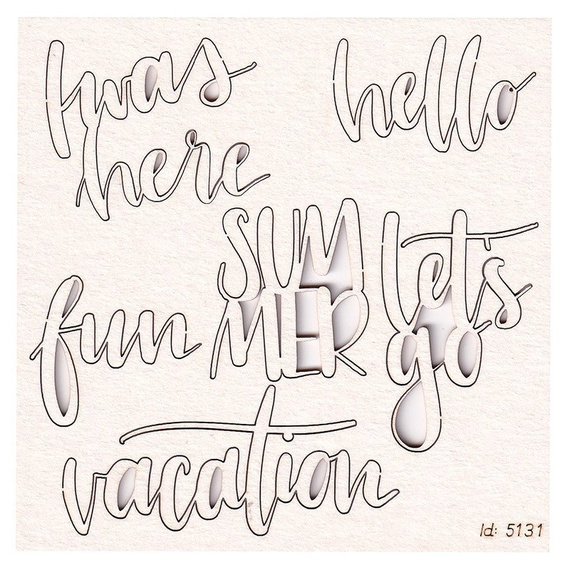 I was
here
hello
SUM
MER
let's
go
fun
vacation
Id: 5131